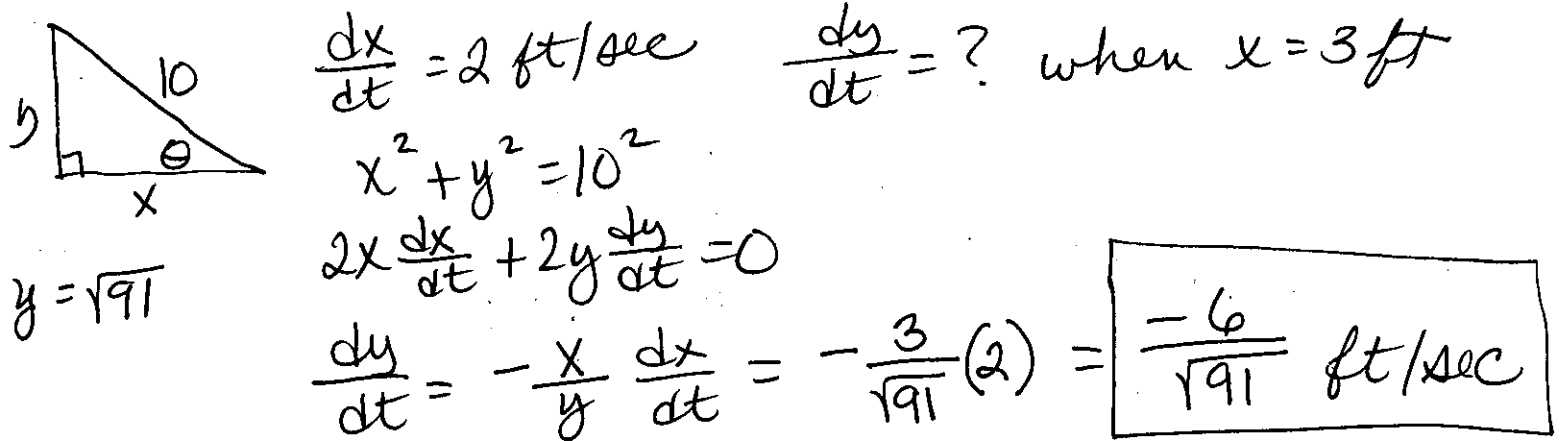 10
y
θ
x
y = √91
dx/dt = 2 ft/sec dy/dt = ? when x = 3 ft
x² + y² = 10²
2x dx/dt + 2y dy/dt = 0
dy/dt = - x/y dx/dt = - 3/√91 (2) = -6/√91 ft/sec